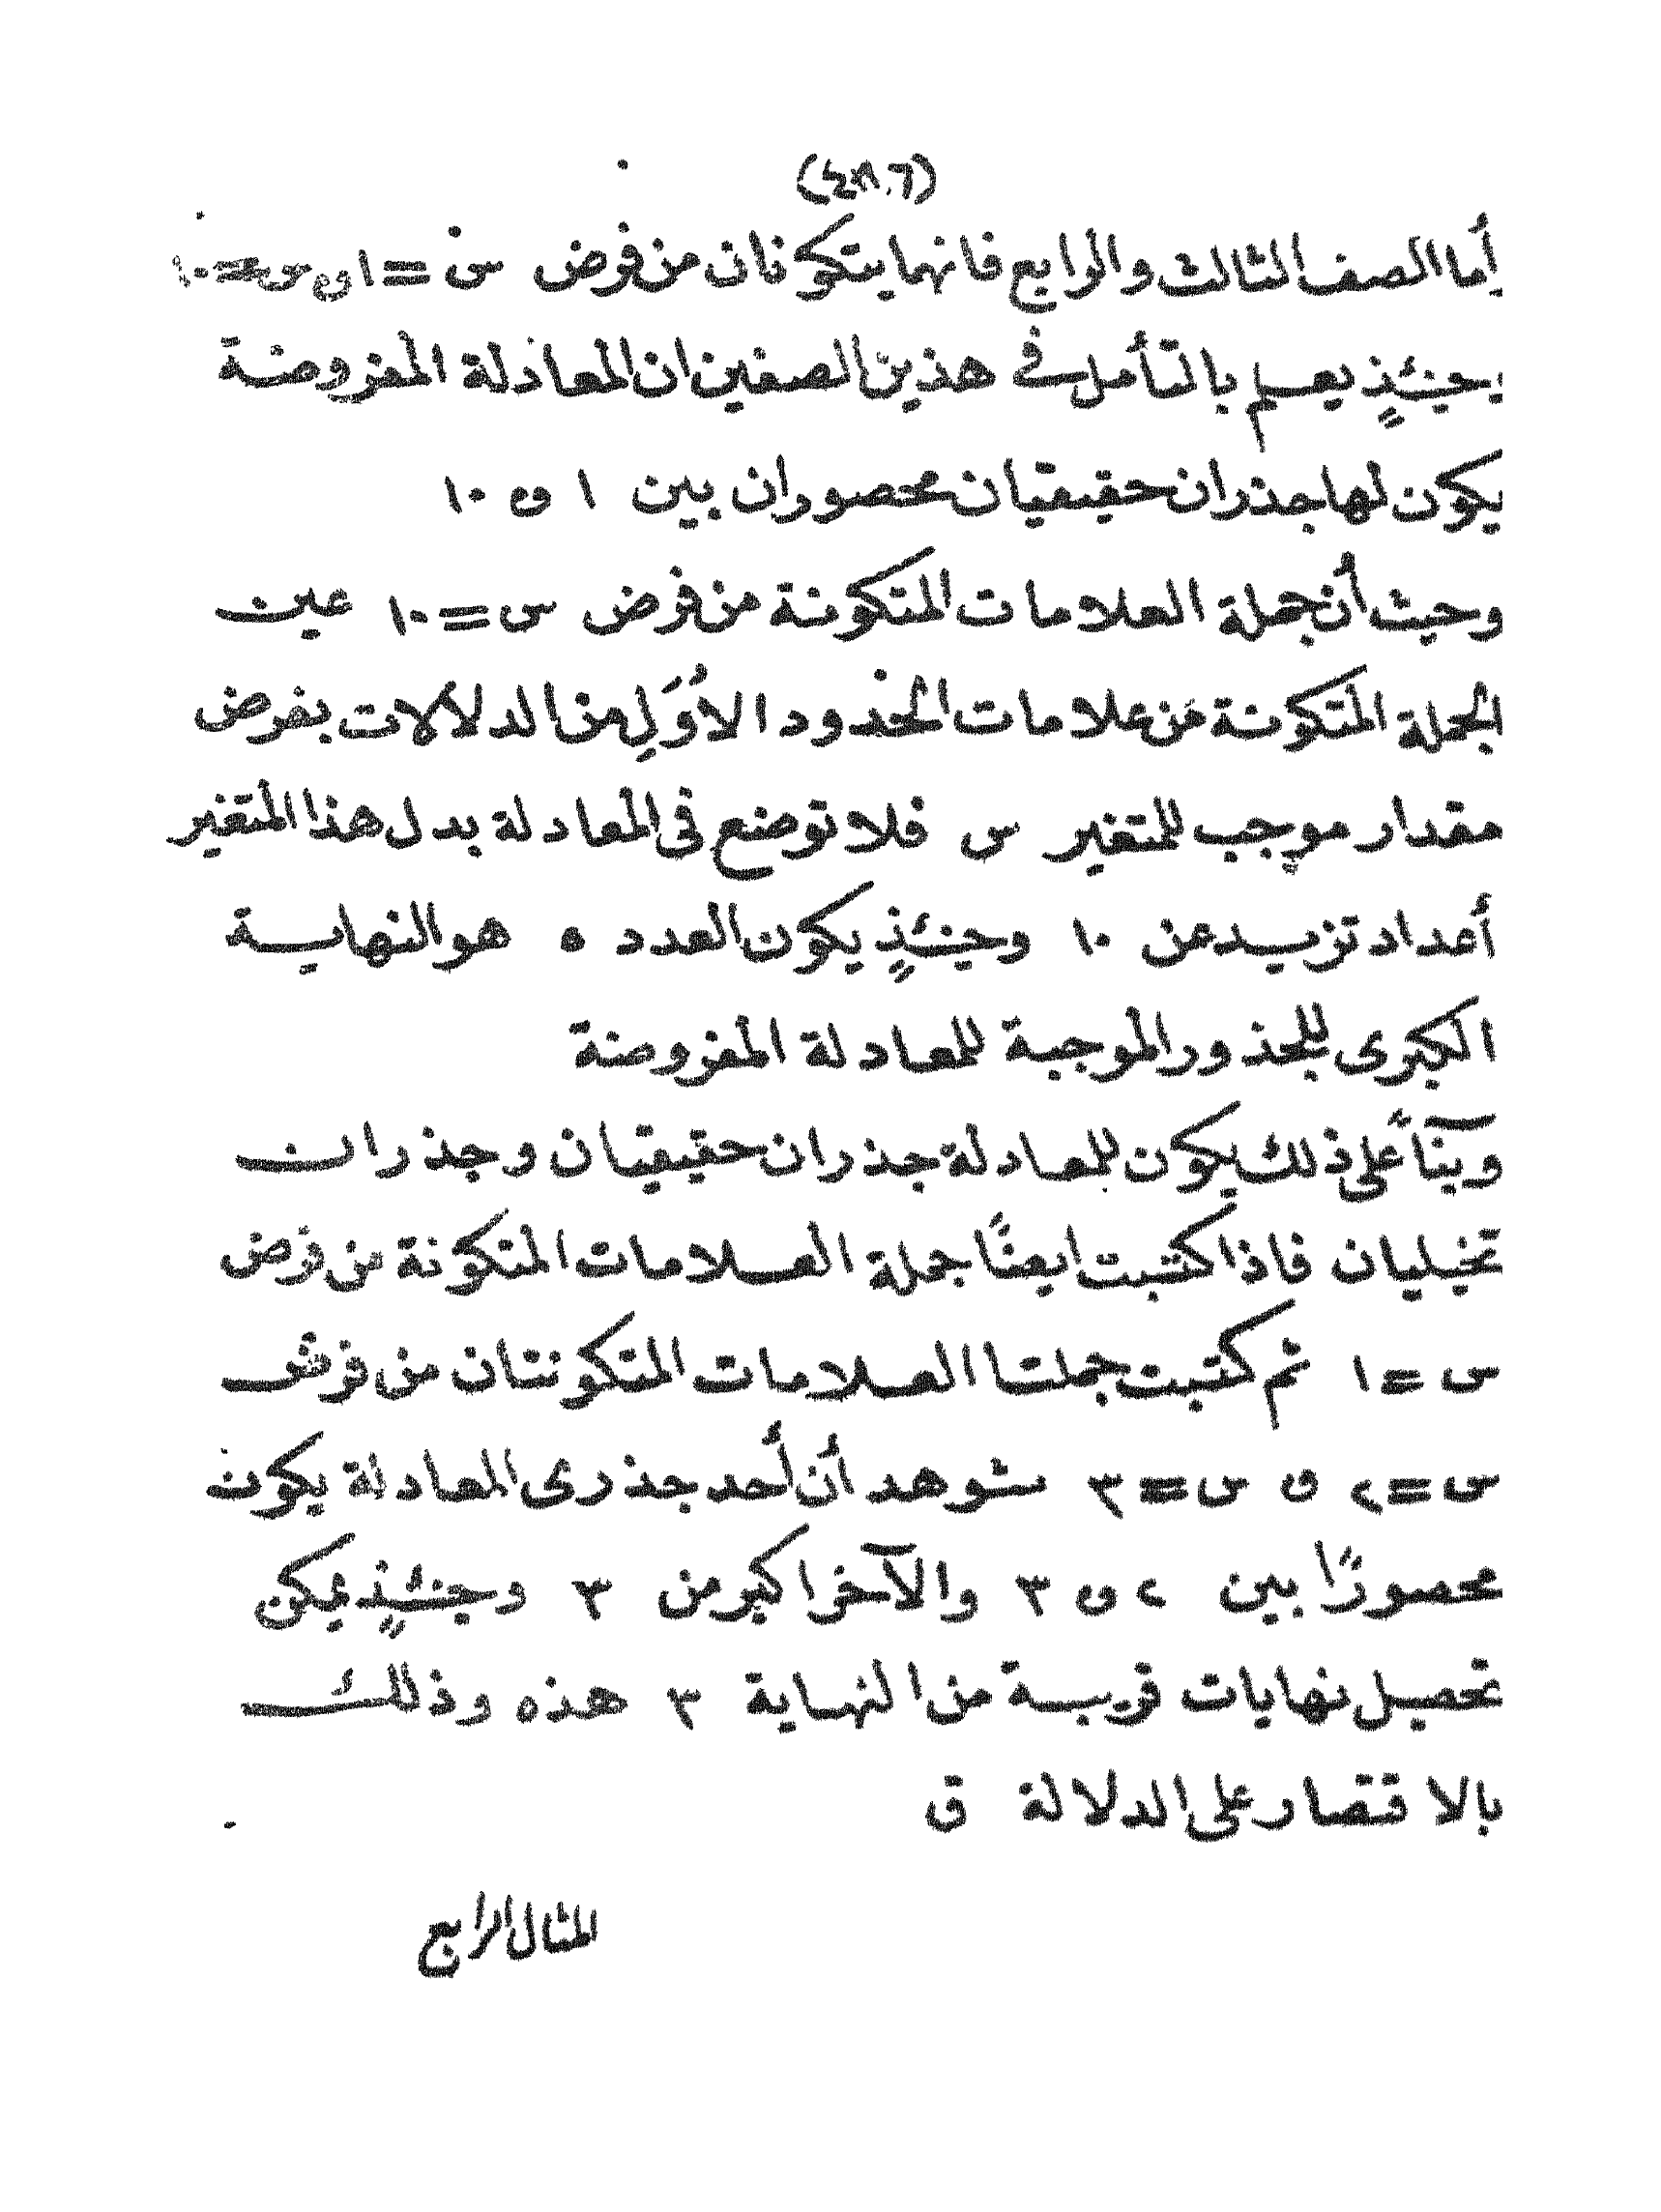 (٤٨٦)
أما الصف الثالث والرابع فانهما يتكونان من فرض س = ١ و س = ١٠
وحينئذٍ يعلم بالتأمل فى هذين الصفين ان المعادلة المفروضة
يكون لها جذران حقيقيان محصوران بين ١ و ١٠
وحيث أن جملة العلامات المتكونة من فرض س = ١٠ عين
الجملة المتكونة من علامات الحدود الأُوَلِ من الدلالات بفرض
مقدار موجب للمتغير س فلا توضع فى المعادلة بدل هذا المتغير
أعداد تزيد عن ١٠ وحينئذٍ يكون العدد ١٠ هو النهاية
الكبرى للجذور الموجبة للمعادلة المفروضة
وبنآً على ذلك يكون للمعادلة جذران حقيقيان وجذران
تخيليان فاذا كتبت ايضًا جملة العلامات المتكونة من فرض
س = ١ ثم كتبت جملتا العلامات المتكونتان من فرض
س = ٢ و س = ٣ شوهد أن أحد جذرى المعادلة يكون
محصورًا بين ٢ و ٣ والآخر اكبر من ٣ وحينئذٍ يمكن
تحصيل نهايات قريبة من النهاية ٣ هذه وذلك
بالاقتصار على الدلالة ق
المثال الرابع